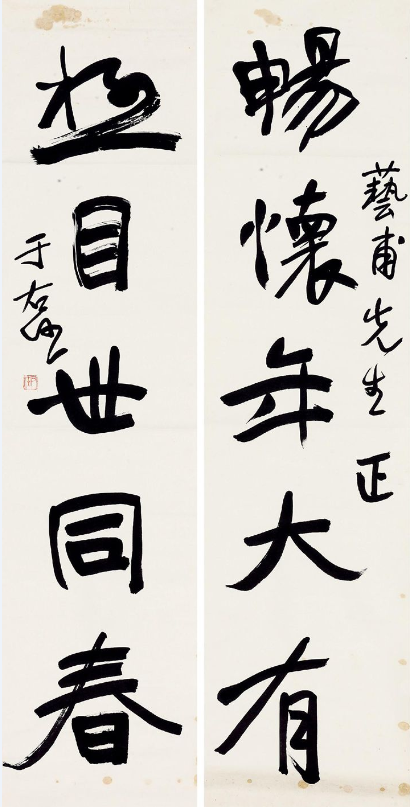 藝甫先生 正
暢懷年大有
極目世同春
于右任